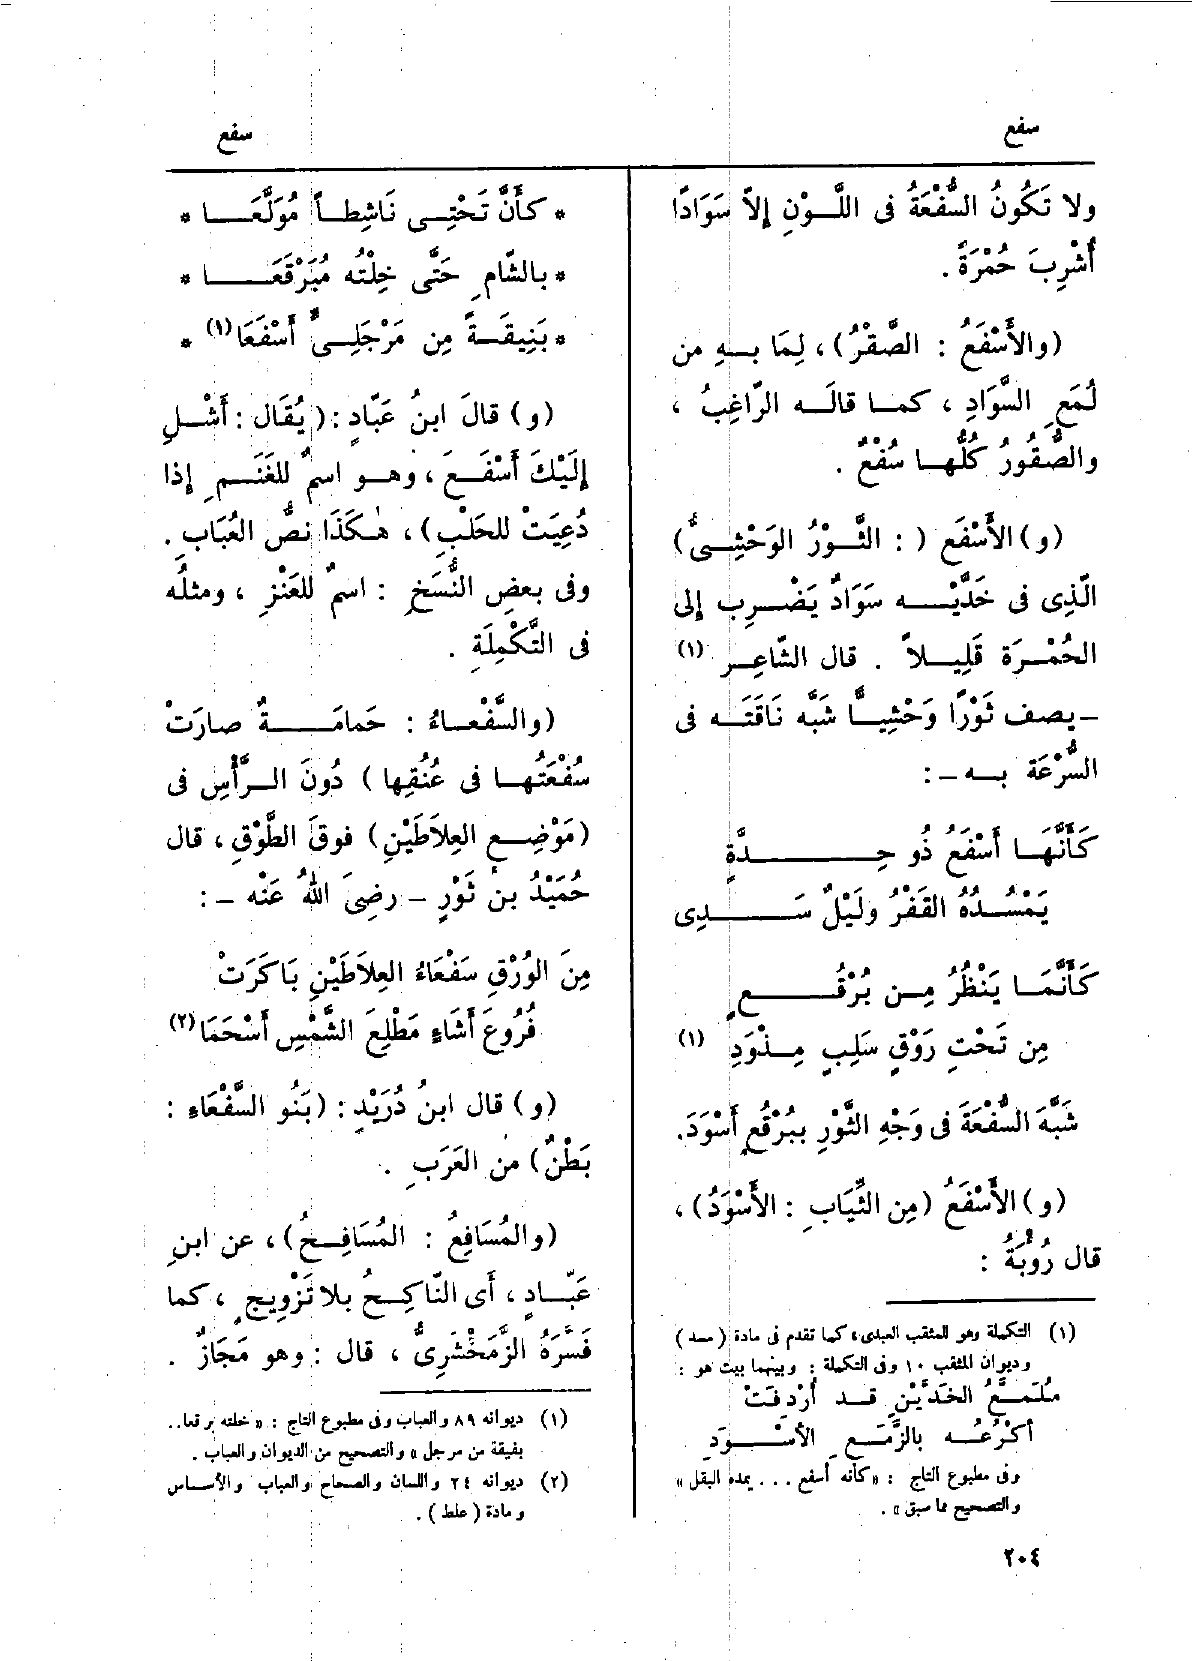 سفع
سفع
ولا تَكُونُ السُّفْعَةُ فى اللَّوْنِ إِلاَّ سَوَادًا
أُشْرِبَ حُمْرَةً .
(والأَسْفَعُ : الصَّقْرُ) ، لِمَا به من
لُمَعِ السَّوَادِ ، كما قالَه الرّاغِبُ ،
والصُّقُورُ كُلُّها سُفْعٌ .
(و) الأَسْفَع ( : الثَّوْرُ الوَحْشِىُّ)
الّذِى فى خَدَّيْه سَوَادٌ يَضْرِب إلى
الحُمْرَة قَلِيلاً . قال الشّاعِر (١)
– يصف ثَوْرًا وَحْشِيًّا شَبَّه نَاقَتَه فى
السُّرْعَة به – :
كَأَنَّهَا أَسْفَعُ ذُو حِدَّةٍ
يَمْسُدُهُ القَفْرُ ولَيْلٌ سَدِى
كَأَنَّمَا يَنْظُرُ مِن بُرْقُعٍ
مِن تَحْتِ رَوْقٍ سَلِبٍ مِذْوَدِ (١)
شَبَّهَ السُّفْعَةَ فى وَجْهِ الثَّوْرِ بِبُرْقُعٍ أَسْوَدَ.
(و) الأَسْفَعُ (مِن الثِّيَابِ : الأَسْوَدُ) ،
قال رُؤْبَةُ :
(١) التكملة وهو المثقب العبدى، كما تقدم فى مادة ( مسد )
وديوان المثقب ١٠ وفى التكملة : وبينهما بيت هو :
مُلَمَّعُ الخَدَّيْنِ قد أُرْدِفَتْ
أكْرُعُه بالزَّمَعِ الأسْوَدِ
وفى مطبوع التاج : «كأنه أسفع . . . يمده البقل »
والتصحيح مما سبق » .
٢٠٤
* كأَنَّ تَحْتِى نَاشِطاً مُوَلَّعَا *
* بالشَّامِ حَتَّى خِلْتُه مُبَرْقَعَا *
* بَنِيقَةً مِن مَرْجَلِىٍّ أَسْفَعَا(١) *
(و) قالَ ابنُ عَبَّادٍ : ( يُقَال : أَشْلِ
إِلَيْكَ أَسْفَعَ ، وهو اسمٌ للغَنَمِ إذا
دُعِيَتْ للحَلْبِ) ، هٰكَذَا نَصُّ العُبَابِ .
وفى بعضِ النُّسَخِ : اسمٌ للعَنْزِ ، ومثلُه
فى التَّكْمِلَةِ .
(والسَّفْعاءُ : حَمامَةٌ صارَتْ
سُفْعَتُها فى عُنُقِها ) دُونَ الرَّأْسِ فى
(مَوْضِعِ العِلاَطَيْنِ) فوقَ الطَّوْقِ ، قال
حُمَيْدُ بن ثَوْرٍ – رضِىَ اللهُ عَنْه – :
مِنَ الوُرْقِ سَفْعَاءُ العِلاَطَيْنِ بَاكَرَتْ
فُرُوعَ أَشَاءٍ مَطْلِعَ الشَّمْسِ أَسْحَمَا(٢)
(و) قال ابنُ دُرَيْدٍ : (بَنُو السَّفْعَاءِ :
بَطْنٌ) من العَرَبِ .
(والمُسَافِعُ : المُسَافِحُ) ، عن ابنِ
عَبّادٍ ، أَى النّاكِحُ بلا تَزْوِيجٍ ، كما
فَسَّرَهُ الزَّمَخْشَرِىُّ ، قال : وهو مَجَازٌ .
(١) ديوانه ٨٩ والعباب وفى مطبوع التاج : « خلته برقعا..
بفيقة من مرجل » والتصحيح من الديوان والعباب .
(٢) ديوانه ٢٤ واللسان والصحاح والعباب والأساس
ومادة ( علط ) .